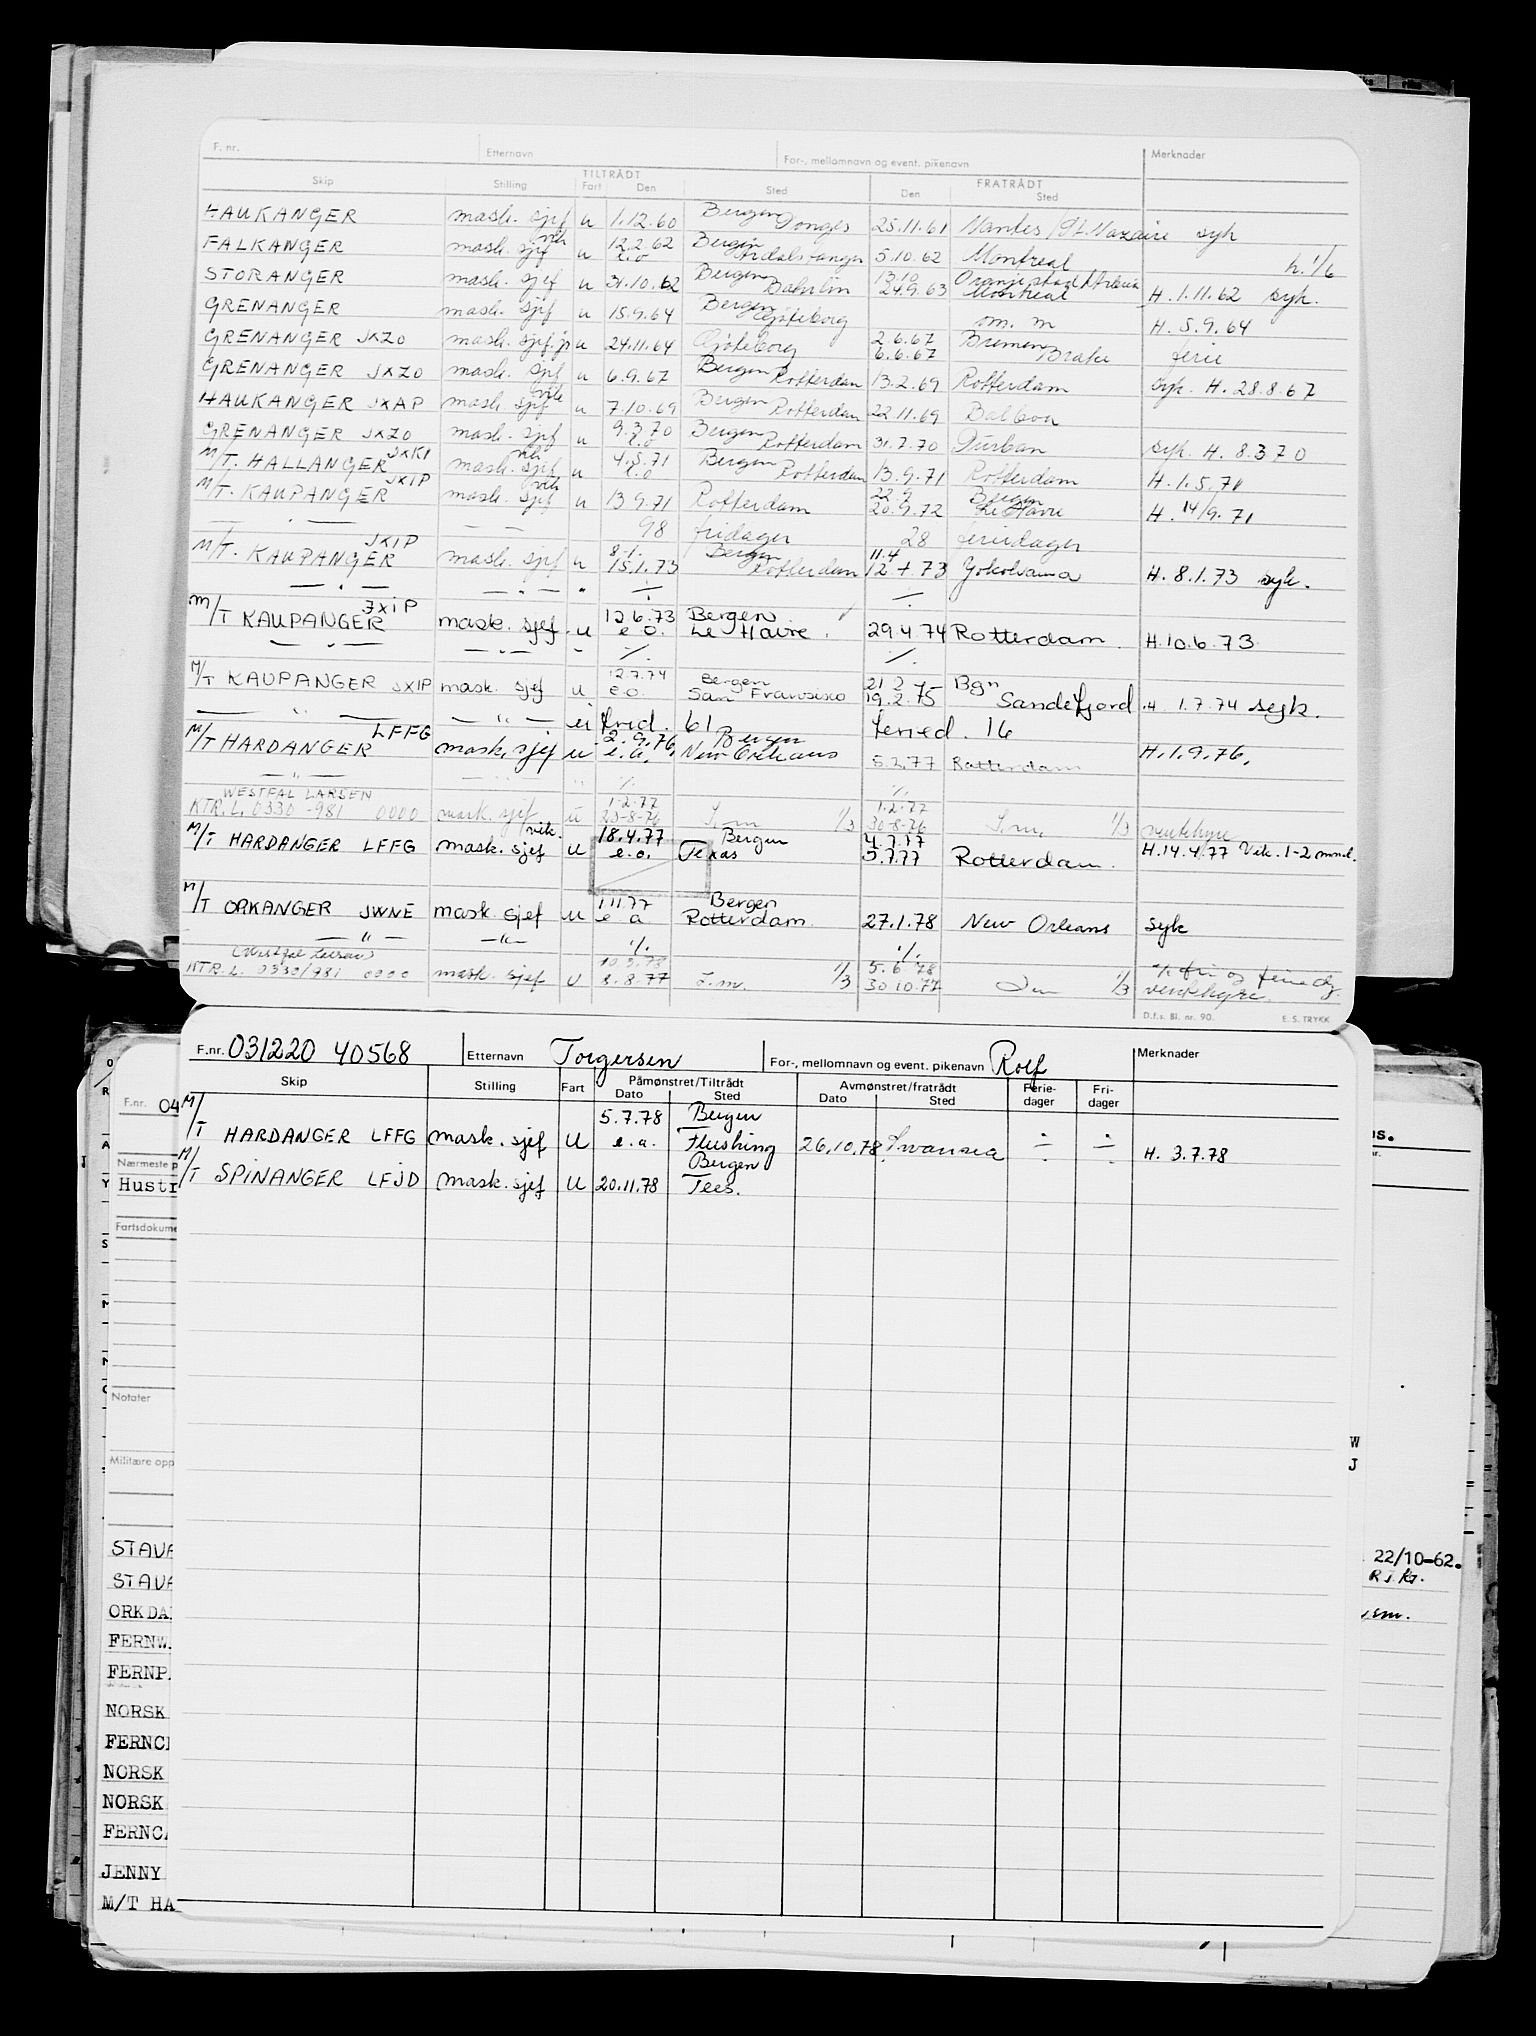 F. nr. Etternavn For-, mellomnavn og event. pikenavn Merknader
TILTRÅDT FRATRÅDT
Skip Stilling Fart Den Sted Den Sted
HAUKANGER mask. sjef u 1.12.60 Bergen Donges 25.11.61 Nantes/St. Nazaire syk
FALKANGER mask. sjef vik u 12.2.62 e.o Bergen Årdalstangen 5.10.62 Montreal h. 1/6
STORANGER mask. sjef u 31.10.62 Bergen 13.10 24.9.63 Oranjestad Montreal H. 1.11.62 syk.
GRENANGER mask. sjef u 15.9.64 Bergen Göteborg om. m H. 5.9.64
GRENANGER JXZO mask. sjef u 24.11.64 Göteborg 2.6.67 6.6.67 Bremen Brake ferie
GRENANGER JXZO mask. sjef u 6.9.67 Bergen Rotterdam 13.2.69 Rotterdam syk. H. 28.8.67
HAUKANGER JXAP mask. sjef vik u 7.10.69 Bergen Rotterdam 22.11.69 Balboa
GRENANGER JXZO mask. sjef u 9.3.70 e.o Bergen Rotterdam 31.7.70 Durban syk. H. 8.3.70
M/T. HALLANGER JXKI mask. sjef vik u 4.5.71 e.o Bergen Rotterdam 13.9.71 Rotterdam H. 1.5.71
M/T. KAUPANGER JXIP mask. sjef vik u 13.9.71 Rotterdam 22.9 20.9.72 Bergen Le Havre H. 14/9.71
— " — — — 98 fridager 28 feriedager
M/T. KAUPANGER JXIP mask. sjef u 8.1. 15.1.73 Bergen Rotterdam 11.4 12.4.73 Yokohama H. 8.1.73 syk.
— " — — " — " ·/· ·/·
M/T KAUPANGER JXIP mask. sjef. u 12.6.73 e.o. Bergen Le Havre. 29.4.74 Rotterdam. H.10.6.73
— " — — " — - ·/· ·/·
M/T KAUPANGER JXIP mask. sjef u 12.7.74 e.o. Bergen San Fransisco 21.2 19.2.75 Bgn Sandefjord H. 1.7.74 syk.
— " — — " — ei frid. 61 feried. 16
M/T HARDANGER LFFG mask. sjef u 2.9.76, e.a. Bergen New Orleans 5.2.77 Rotterdam H. 1.9.76.
— " — ·/· ·/·
WESTFAL LARSEN
KTR.L. 0330-981 0000 mask. sjef u 1.2.77 20-8-76 L.m 1/3 1.2.77 30-8-76 L.m. 1/3 ventehyre
M/T HARDANGER LFFG mask. sjef vik. u 18.4.77 e.o. Bergen Texas 4.7.77 5.7.77 Rotterdam. H.14.4.77 Vik. 1-2 mnd.
M/T ORKANGER JWNE mask. sjef u 1.11.77 e a Bergen Rotterdam 27.1.78 New Orleans syk
— " — — " — ·/· ·/·
(Westfal Larsen)
KTR. L. 0330/981 0000 mask. sjef u 8.8.77 L.m. 1/3 5.6.78 30.10.77 1/3 fri og feriedg. ventehyre
D.f.s. Bl. nr. 90. E. S. TRYKK
F.nr. 031220 40568 Etternavn Torgersen For-, mellomnavn og event. pikenavn Rolf Merknader
Skip Stilling Fart Påmønstret/Tiltrådt Avmønstret/fratrådt Ferie-dager Fri-dager
Dato Sted Dato Sted
M/T HARDANGER LFFG mask. sjef u 5.7.78 e.a. Bergen Flushing 26.10.78 Swansea ÷ ÷ H. 3.7.78
M/T SPINANGER LFJD mask. sjef u 20.11.78 Bergen Tees.
F.nr. 04
Nærmeste p
Hustr
Fartsdokume
Notater
Militære opp
STAVA
STAVA
ORKDA
FERNW
FERNP
NORSK
FERNC
NORSK
NORSK
FERNCA
JENNY
M/T HA
W
J
22/10-62.